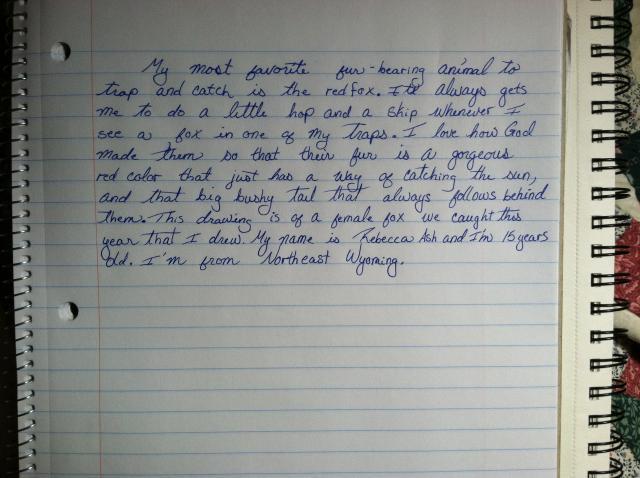 My most favorite fur-bearing animal to
trap and catch is the red fox. It always gets
me to do a little hop and a skip whenever I
see a fox in one of my traps. I love how God
made them so that their fur is a gorgeous
red color that just has a way of catching the sun,
and that big bushy tail that always follows behind
them. This drawing is of a female fox we caught this
year that I drew. My name is Rebecca Ash and I'm 15 years
old. I'm from Northeast Wyoming.